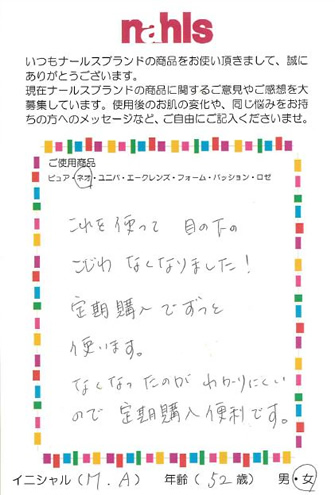 nahls
いつもナールスブランドの商品をお使い頂きまして、誠に
ありがとうございます。
現在ナールスブランドの商品に関するご意見やご感想を大
募集しています。使用後のお肌の変化や、同じ悩みをお持
ちの方へのメッセージなど、ご自由にご記入くださいませ。
ご使用商品
ピュア・ネオ・ユニバ・エークレンズ・フォーム・パッション・ロゼ
これを使って 目の下の
こじわ なくなりました!
定期購入でずっと
使います。
なくなったのが わかりにくい
ので 定期購入便利です。
イニシャル(M.A) 年齢(52歳) 男・女